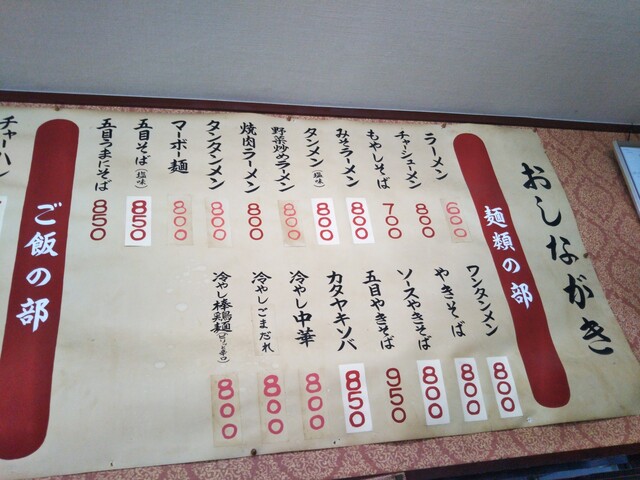 おしながき
麺類の部
ラーメン 600
チャーシューメン 800
もやしそば 700
みそラーメン 800
タンメン(塩味) 800
野菜炒めラーメン 800
焼肉ラーメン 800
タンタンメン 800
マーボー麺 800
五目そば(塩味) 850
五目うまにそば 850
ワンタンメン 800
やきそば 800
ソースやきそば 800
五目やきそば 950
カタヤキソバ 850
冷やし中華 800
冷やしごまだれ 800
冷やし棒鶏麺 800
ご飯の部
チャーハン